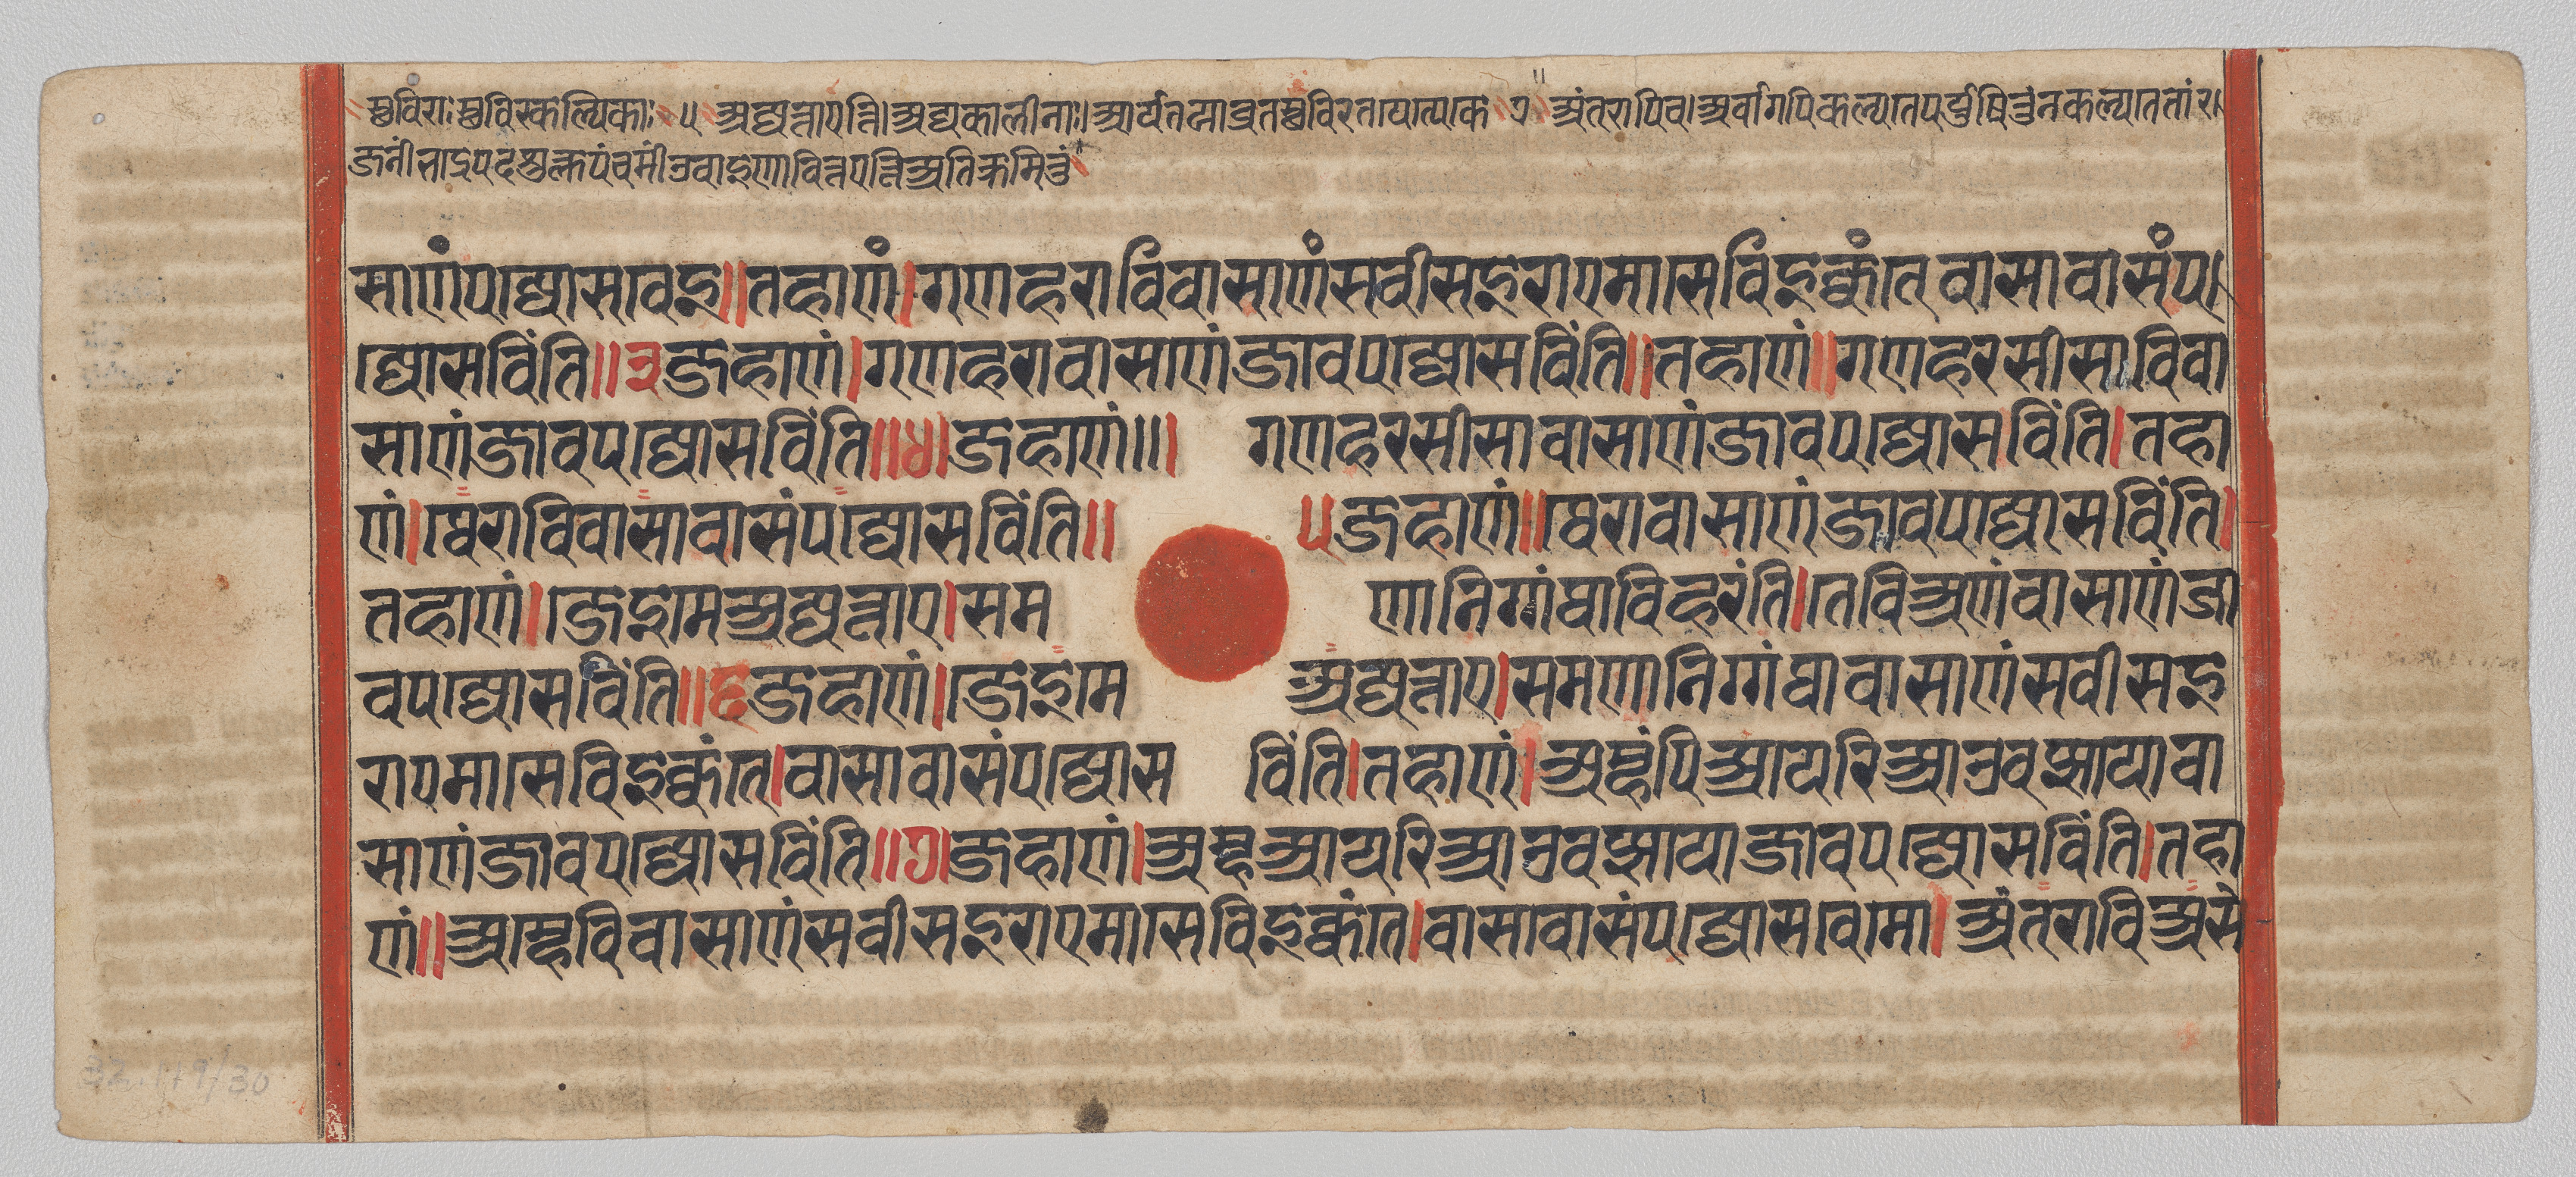 स्थविराः स्थविरकल्पिकाः ॥ ५ अद्यत्ताएत्ति।अद्यकालीनाः।आर्यतयाव्रतस्थविरतयेत्येके ७ अंतरापिच।अर्वागपिकल्पतेपर्युषितुंनकल्पतेतांर।
जनींभाद्रपदशुक्लपंचमींउवाइणावित्तएत्तिअतिक्रमितुं
साणंपज्जोसवेइ॥तहाणं।गणहरावि वासाणंसवीसइराएमासेविइक्कंतेवासावासंप।
ज्जोसविंति॥३जहाणं।गणहरावासाणंजावपज्जोसविंति॥तहाणं॥गणहरसीसाविवा
साणंजावपज्जोसविंति॥४।जहाणं॥। गणहरसीसावासाणंजावपज्जोसविंति।तहा
णं।थेराविवासावासंपज्जोसविंति॥ ५जहाणं॥थेरावासाणंजावपज्जोसविंति।
तहाणं।जेइमेअज्जत्ताए।सम णानिग्गंथाविहरंति।तेविअणंवासाणंजा
वपज्जोसविंति॥६जहाणं।जेइमे अज्जत्ताए।समणानिग्गंथावासाणंसवीसइ
राएमासेविइक्कंते।वासावासंपज्जोस विंति।तहाणं।अम्हंपिआयरिआउवज्झायावा
साणंजावपज्जोसविंति॥७।जहाणं।अम्हआयरिआउवज्झायाजावपज्जोसविंति।तहा
णं॥अम्हेविवासाणंसवीसइराएमासेविइक्कंते।वासावासंपज्जोसवेमो।अंतराविअसे